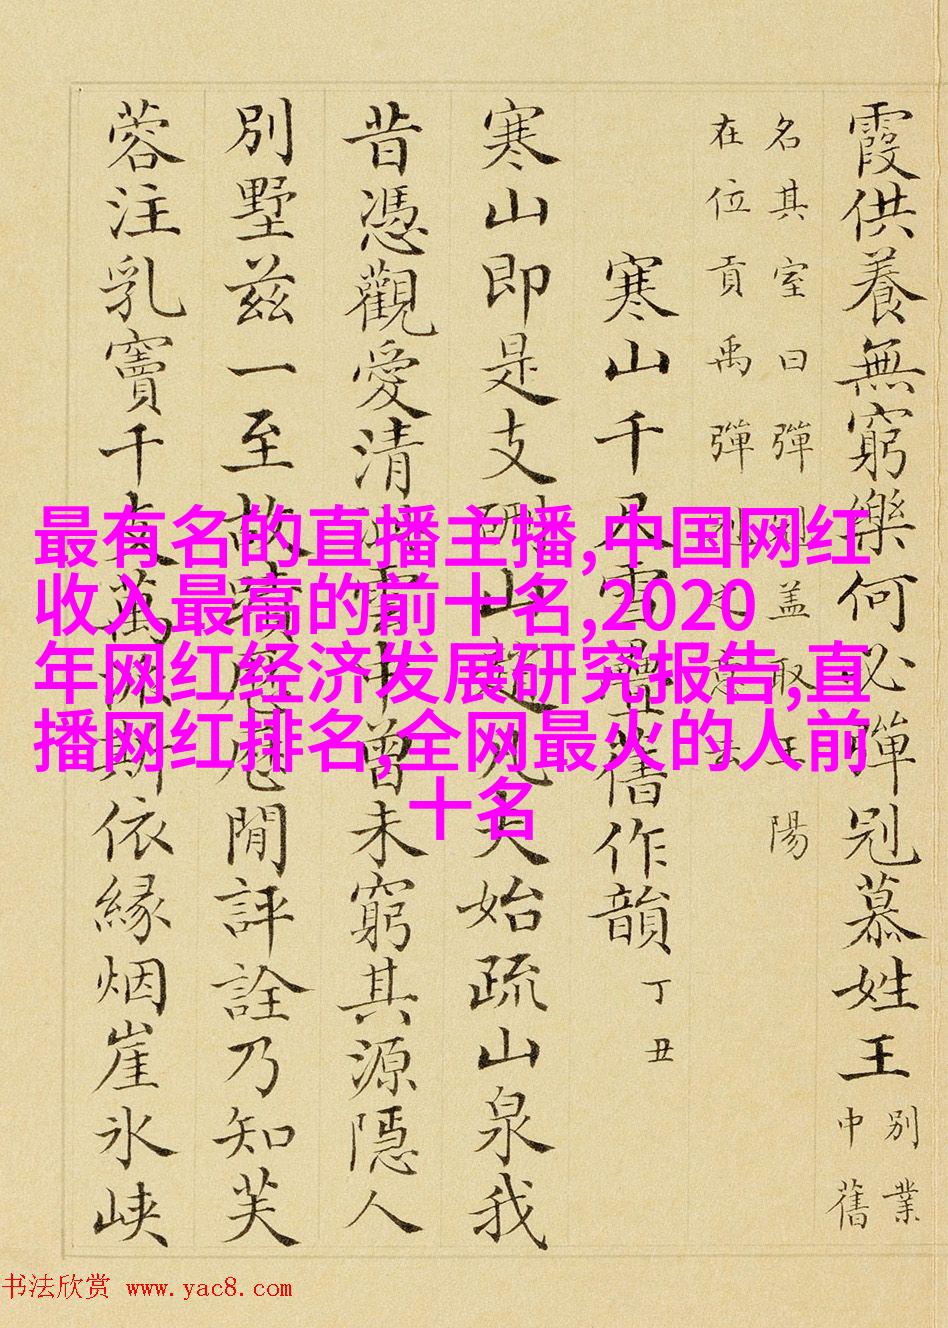 霞供養無窮樂何必彈冠慕姓王
別業
中舊
名其室曰彈冠蓋取王陽
在位貢禹彈冠意
寒山千尺雪疊舊作韻 丁丑
寒山即是支硎山趙凡夫始疏山泉我
昔憑觀愛清中曾未窮其源隱人
別墅茲一至故蹟歷閒評詮乃知芙
蓉注乳竇千支萬派斯依緣烟崖氷峽
最有名的直播主播,中国网红
收入最高的前十名,2020
年网红经济发展研究报告,直
播网红排名,全网最火的人前
十名
书法欣赏 www.yac8.com